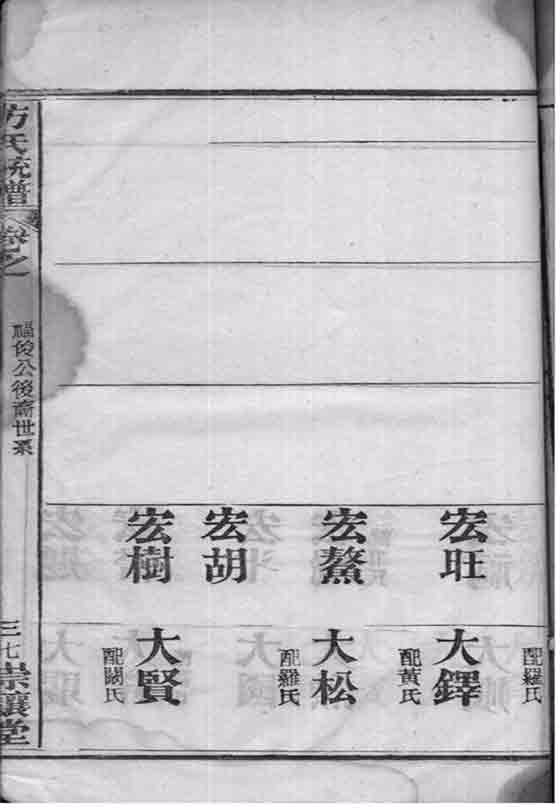 配羅氏
宏旺
大鐸
配黃氏
宏鰲
大松
配羅氏
宏胡
宏樹
大賢
配關氏
方氏統譜
卷之一
福俊公後裔世系
三七
崇讓堂